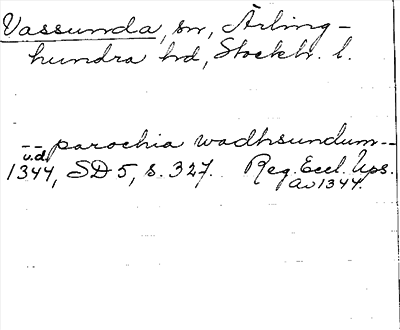 Vassunda, sn, Ärling-
hundra hd, Stockh. l.
-- parochia wadhsundum --
u.d.
1344, SD 5, s. 327. Reg. Eccl. Ups.
av 1344.